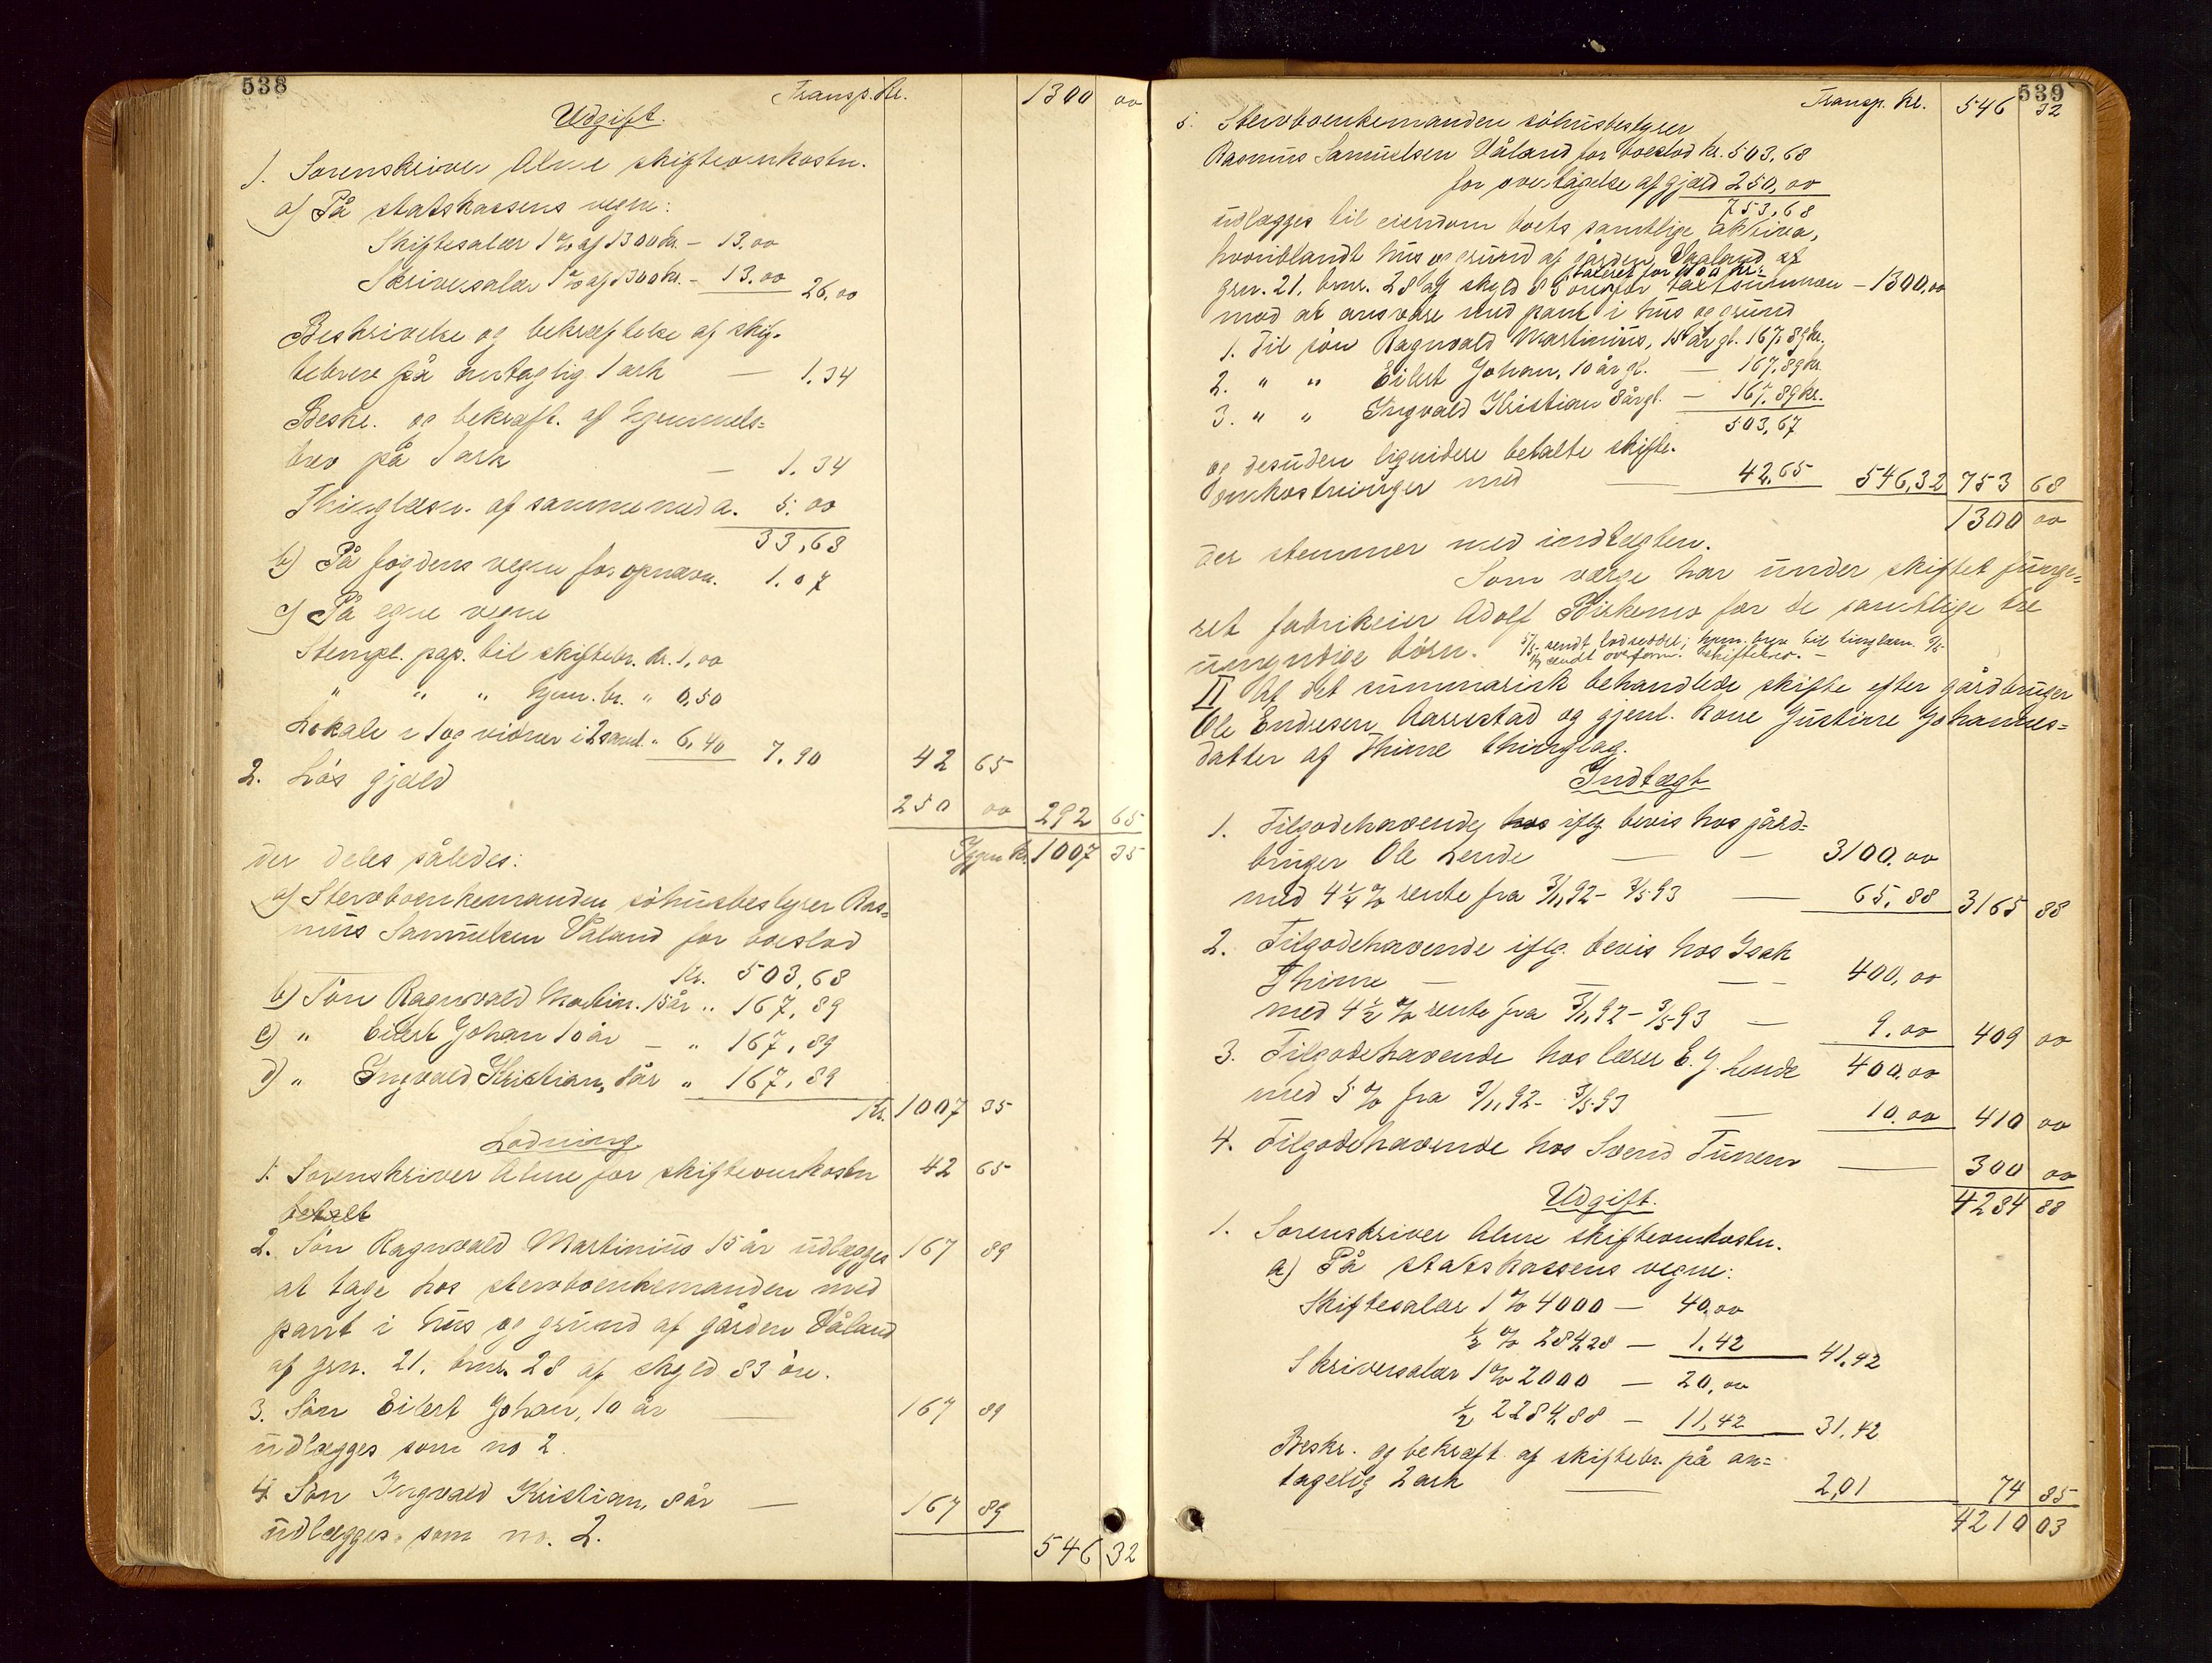 538
Transp. Kr. 1300 00
Udgift.
1. Sorenskriver Alme skifteomkostn.
a) På statskassens vegne:
Skiftesalær 1 % af 1300 kr. - 13.00
Skriversalær 1 % af 1300 kr. - 13.00 26,00
Beskrivelse og bekræftelse af skif-
tebrev på antaglig 1 ark — 1.34
Beskr. og bekræft. af hjemmels=
brev på 1 ark — 1.34
Thinglæsn. af samme med a. 5.00
33,68
b) På fogdens vegne for opnævn. 1.07
c) På egne vegne
Stempl. pap. til skiftebr. kr. 1,00
" " " hjem.br. " 0,50
Lokale 1 og vidner i 2 saml. " 6,40 7.90 42 65
2. Løs gjæld
250 00 292 65
Igjen kr. 1007 35
der deles således:
a) Stervboenkemanden söhusbestyrer Ras=
mus Samuelsen Våland for boeslod
Kr. 503,68
b) Sön Ragnvald Martin. 15 år " 167,89
c) " Eilert Johan 10 år — " 167,89
d) " Ingvald Kristian, 8 år " 167,89
Kr. 1007 35
Lodning
1. Sorenskriver Alme for skifteomkostn 42 65
betalt
2. Sön Ragnvald Martinius 15 år udlægges 167 89
at tage hos stervboenkemanden med
pant i hus og grund af gården Våland
af grn. 21, brnr. 28 af skyld 83 öre.
3. Sön Eilert Johan, 10 år — 167 89
udlægges som no 2.
4 Sön Ingvald Kristian, 8 år — 167 89
udlægges som no. 2.
546 32
539
Transp. kr. 546 32
5. Stervboenkemanden söhusbestyrer
Rasmus Samuelsen Våland for boeslod kr. 503,68
for overtagelse af gjæld 250,00
753,68
udlægges til eiendom boets samtlige aktiva,
hvoriblandt hus og grund af gården Vaaland af
taxeret for 1300 kr:
grn. 21, brnr. 28 af skyld 83 öre for taxtsummen — 1300,00
mod at ansvare med pant i hus og grund
1. til sön Ragnvald Martinius, 15 år gl. 167,89 kr.
2. " " Eilert Johan, 10 år gl. — 167,89 kr
3. " " Ingvald Kristian 8 årgl. — 167,89 kr.
503,67
og desuden ligvidere betalte skifte-
omkostninger med — 42,65 546,32 753 68
1300 00
der stemmer med indtægten.
Som værge har under skiftet funge=
ret fabrikeier Adolf Birkemo for de samtlige tre
umyndige börn. 5/5 sendt lodseddel; hjem. brev til tinglæsn.
sendt overform. skiftebrev. —
II Af det summarisk behandlede skifte efter gårdbruger
Ole Endresen Aarrestad og gjenl. kone Justine Johannes=
datter af Thime thinglag.
Indtægt
1. Tilgodehavende hos iflg bevis hos gård=
bruger Ole Lende — — 3100.00
med 4 1/4 % rente fra 3/11 92 - 3/5 93 — 65.88 3165 88
2. Tilgodehavende iflg. bevis hos Isak
Thime — — — 400,00
med 4 1/2 % rente fra 3/11 92 - 3/5 93 — 9.00 409 00
3. Tilgodehavende hos lærer E. J. Lende 400,00
med 5 % fra 3/11 92 - 3/5 93 — 10.00 410 00
4. Tilgodehavende hos Svend Tunem — 300 00
4284 88
Udgift.
1. Sorenskriver Alme skifteomkostn.
a) På statskassens vegne:
Skiftesalær 1 % 4000 — 40,00
1/2 % 284,28 — 1.42 41.42
Skriversalær 1 % 2000 — 20,00
1/2 2284,88 — 11,42 31.42
Beskr. og bekræft. af skiftebr. på an=
tagelig 2 ark — 2,01 74 85
4210 03